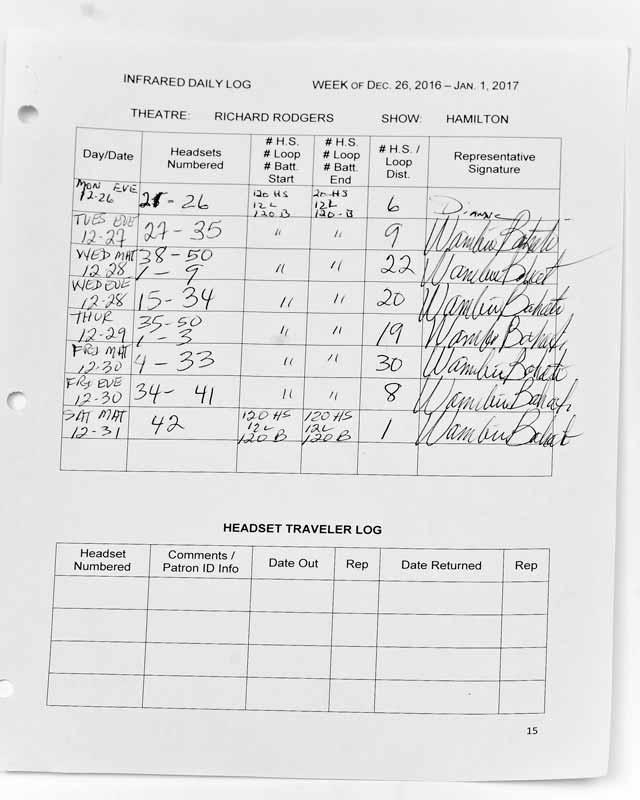 INFRARED DAILY LOG WEEK OF DEC. 26, 2016 – JAN. 1, 2017
THEATRE: RICHARD RODGERS SHOW: HAMILTON
Day/Date Headsets Numbered # H.S. # Loop # Batt. Start # H.S. # Loop # Batt. End # H.S. / Loop Dist. Representative Signature
MON EVE 12-26 21 - 26 120 HS 12L 120 B 120 HS 12L 120-B 6
TUES EVE 12-27 27 - 35 " " 9 Wambui Bahati
WED MAT 12 28 38-50 1 - 9 " " 22 Wambui Bahati
WED EVE 12-28 15-34 " " 20 Wambui Bahati
THUR 12-29 35-50 1 - 3 " " 19 Wambui Bahati
FRI MAT 12-30 4 - 33 " " 30 Wambui Bahati
FRI EVE 12-30 34- 41 " " 8 Wambui Bahati
SAT MAT 12-31 42 120 HS 12L 120 B 120 HS 12L 120 B 1 Wambui Bahati
HEADSET TRAVELER LOG
Headset Numbered Comments / Patron ID Info Date Out Rep Date Returned Rep
15